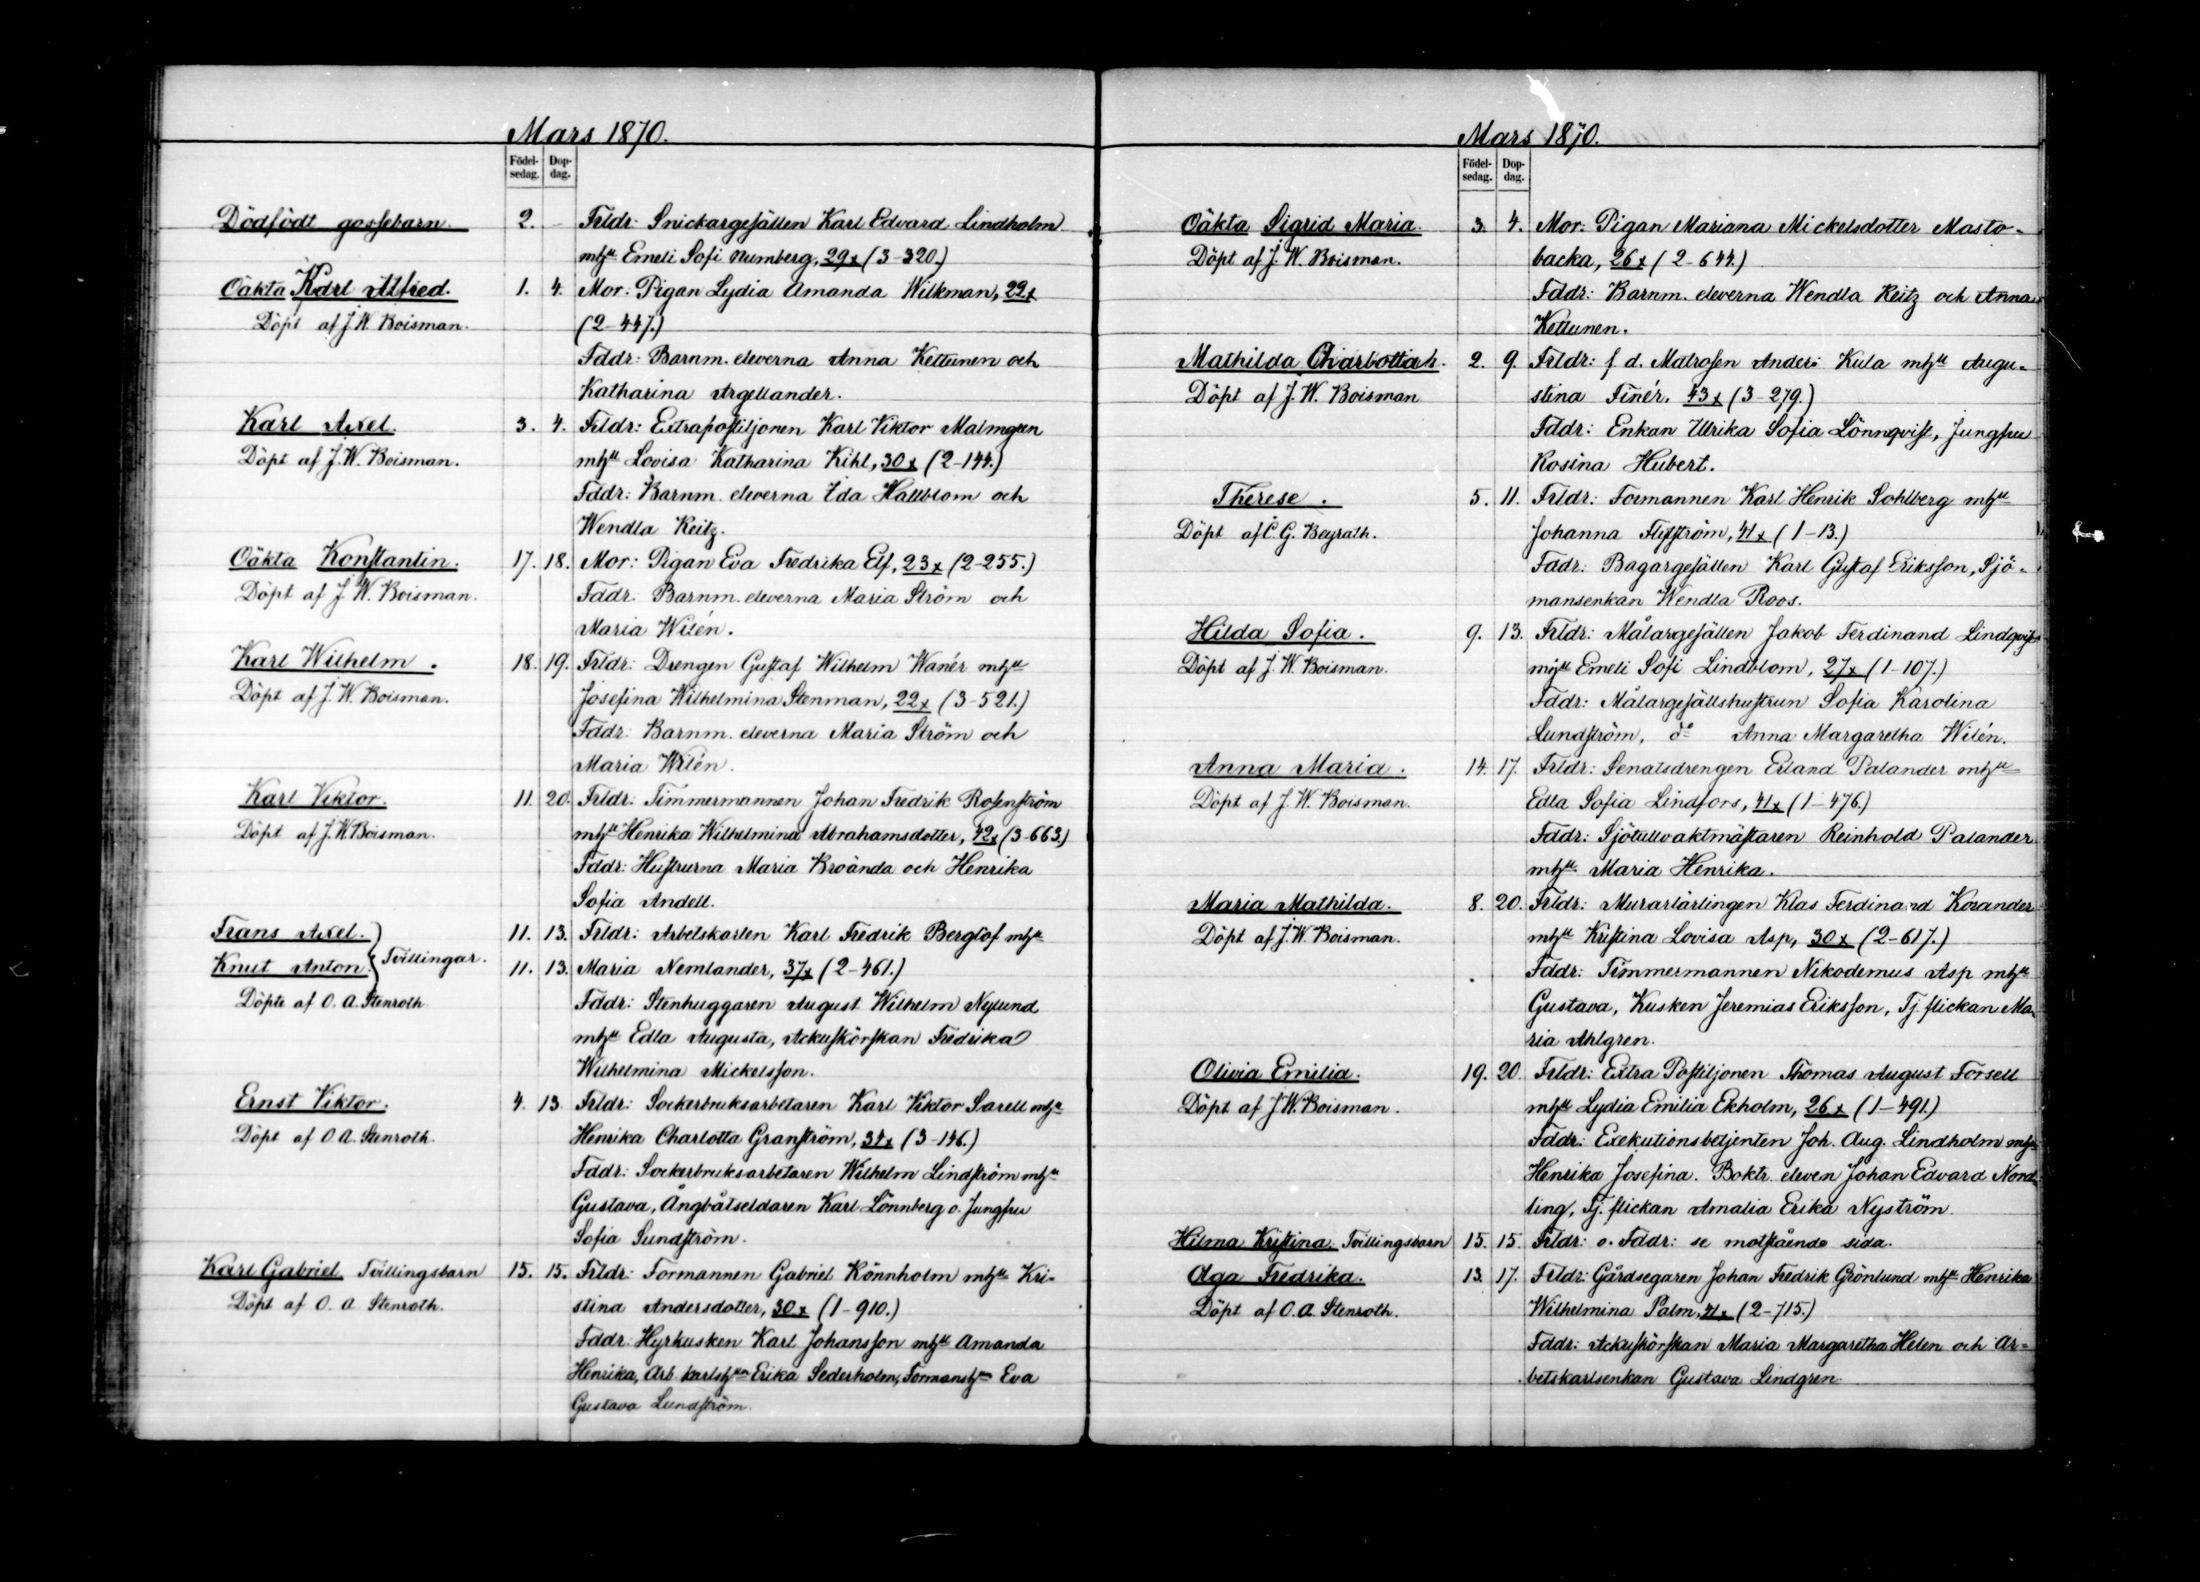 Mars 1870.
Födel-
sedag.
Dop-
dag.
Dödfödt gossebarn. 2. – Frldr: Snickargesällen Karl Edvard Lindholm
mhu Emeli Sofi Numberg, 29x (3-320.)
Oäkta Karl Alfred. 1. 4. Mor: Pigan Lydia Amanda Wilkman, 22x
Döpt af J. W. Boisman. (2-447.)
Fddr: Barnm. eleverna Anna Kettunen och
Katharina Argellander.
Karl Axel. 3. 4. Frldr: Extrapostiljonen Karl Viktor Malmgren
Döpt af J. W. Boisman. mhu Lovisa Katharina Kihl, 30x (2-144.)
Fddr: Barnm. eleverna Ida Hallblom och
Wendla Reitz.
Oäkta Konstantin. 17. 18. Mor: Pigan Eva Fredrika Elf, 23x (2-255.)
Döpt af J. W. Boisman. Fddr: Barnm. eleverna Maria Ström och
Maria Wilén.
Karl Wilhelm. 18. 19. Frldr: Drengen Gustaf Wilhelm Wanér mhu
Döpt af J. W. Boisman. Josefina Wilhelmina Stenman, 22x (3-521.)
Fddr: Barnm. eleverna Maria Ström och
Maria Wilén.
Karl Viktor. 11. 20. Frldr: Timmermannen Johan Fredrik Rosenström
Döpt af J. W. Boisman. mhu Henrika Wilhelmina Abrahamsdotter, 42x (3-663.)
Fddr: Hustrurna Maria Broända och Henrika
Sofia Andell.
Frans Axel. 11. 13. Frldr: Arbetskarlen Karl Fredrik Berglöf mhu
Knut Anton. Tvillingar. 11. 13. Maria Nemlander, 37x (2-461.)
Döpte af O. A. Stenroth. Fddr: Stenhuggaren August Wilhelm Nylund
mhu Edla Augusta, Ackuskörskan Fredrika
Wilhelmina Mickelsson.
Ernst Viktor. 4. 13. Frldr: Sockerbruksarbetaren Karl Viktor Sarell mhu
Döpt af O. A. Stenroth. Henrika Charlotta Granström, 34x (3-146.)
Fddr: Sockerbruksarbetaren Wilhelm Lindström mhu
Gustava, Ångbåtseldaren Karl Lönnberg o. Jungfru
Sofia Sundström.
Karl Gabriel Tvillingsbarn 15. 15. Frldr: Formannen Gabriel Rönnholm mhu Kri-
Döpt af O. A. Stenroth. stina Andersdotter, 30x (1-910.)
Fddr: Hyrkusken Karl Johansson mhu Amanda
Henrika, Arb. karlshun Erika Sederholm, Formanshun Eva
Gustava Lundström.
Mars 1870.
Födel-
sedag.
Dop-
dag.
Oäkta Sigrid Maria. 3. 4. Mor: Pigan Mariana Mickelsdotter Masto-
Döpt af J. W. Boisman. backa, 26x (2-644.)
Fddr: Barnm. eleverna Wendla Reitz och Anna
Kettunen.
Mathilda Charlotta. 2. 9. Frldr: f d. Matrosen Anders Kula mhu Augu-
Döpt af J. W. Boisman stina Finér, 43x (3-279.)
Fddr: Enkan Ulrika Sofia Lönnqvist, Jungfru
Rosina Hubert.
Therese. 5. 11. Frldr: Formannen Karl Henrik Sohlberg mhu
Döpt af C. G. Beyrath. Johanna Flytström, 41x (1-13.)
Fddr: Bagargesällen Karl Gustaf Eriksson, Sjö-
mansenkan Wendla Roos.
Hilda Sofia. 9. 13. Frldr: Målargesällen Jakob Ferdinand Lindqvist
Döpt af J. W. Boisman. mhu Emeli Sofi Lindblom, 27x (1-107.)
Fddr: Målargesällshustrun Sofia Karolina
Sundström, do Anna Margaretha Wilén.
Anna Maria. 14. 17. Frldr: Senatsdrengen Erland Palander mhu
Döpt af J. W. Boisman. Edla Sofia Lindfors, 41x (1-476.)
Fddr: Sjötullvaktmästaren Reinhold Palander
mhu Maria Henrika.
Maria Mathilda. 8. 20. Frldr: Murarlärlingen Klas Ferdinand Korander
Döpt af J. W. Boisman. mhu Kristina Lovisa Asp, 30x (2-617.)
Fddr: Timmermannen Nikodemus Asp mhu
Gustava, Kusken Jeremias Eriksson, Tj. flickan Ma-
ria Ahlgren.
Olivia Emilia. 19. 20. Frldr: Extra Postiljonen Thomas August Forsell
Döpt af J. W. Boisman. mhu Lydia Emilia Ekholm, 26x (1-491.)
Fddr: Exekutionsbetjenten Joh. Aug. Lindholm mhu
Henrika Josefina. Boktr. eleven Johan Edvard Nord-
ling, Tj. flickan Amalia Erika Nyström.
Hilma Kristina Tvillingsbarn 15. 15. Frldr: o. Fddr: se motstående sida.
Olga Fredrika. 13. 17. Frldr: Gårdsegaren Johan Fredrik Grönlund mhu Henrika
Döpt af O. A. Stenroth. Wilhelmina Palm, 41x (2-715.)
Fddr: Ackuskörskan Maria Margaretha Helen och Ar-
betskarlsenkan Gustava Lindgren.